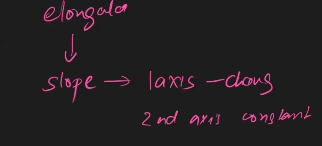 elongata
↓
slope → 1axis - chang
2nd axis constant